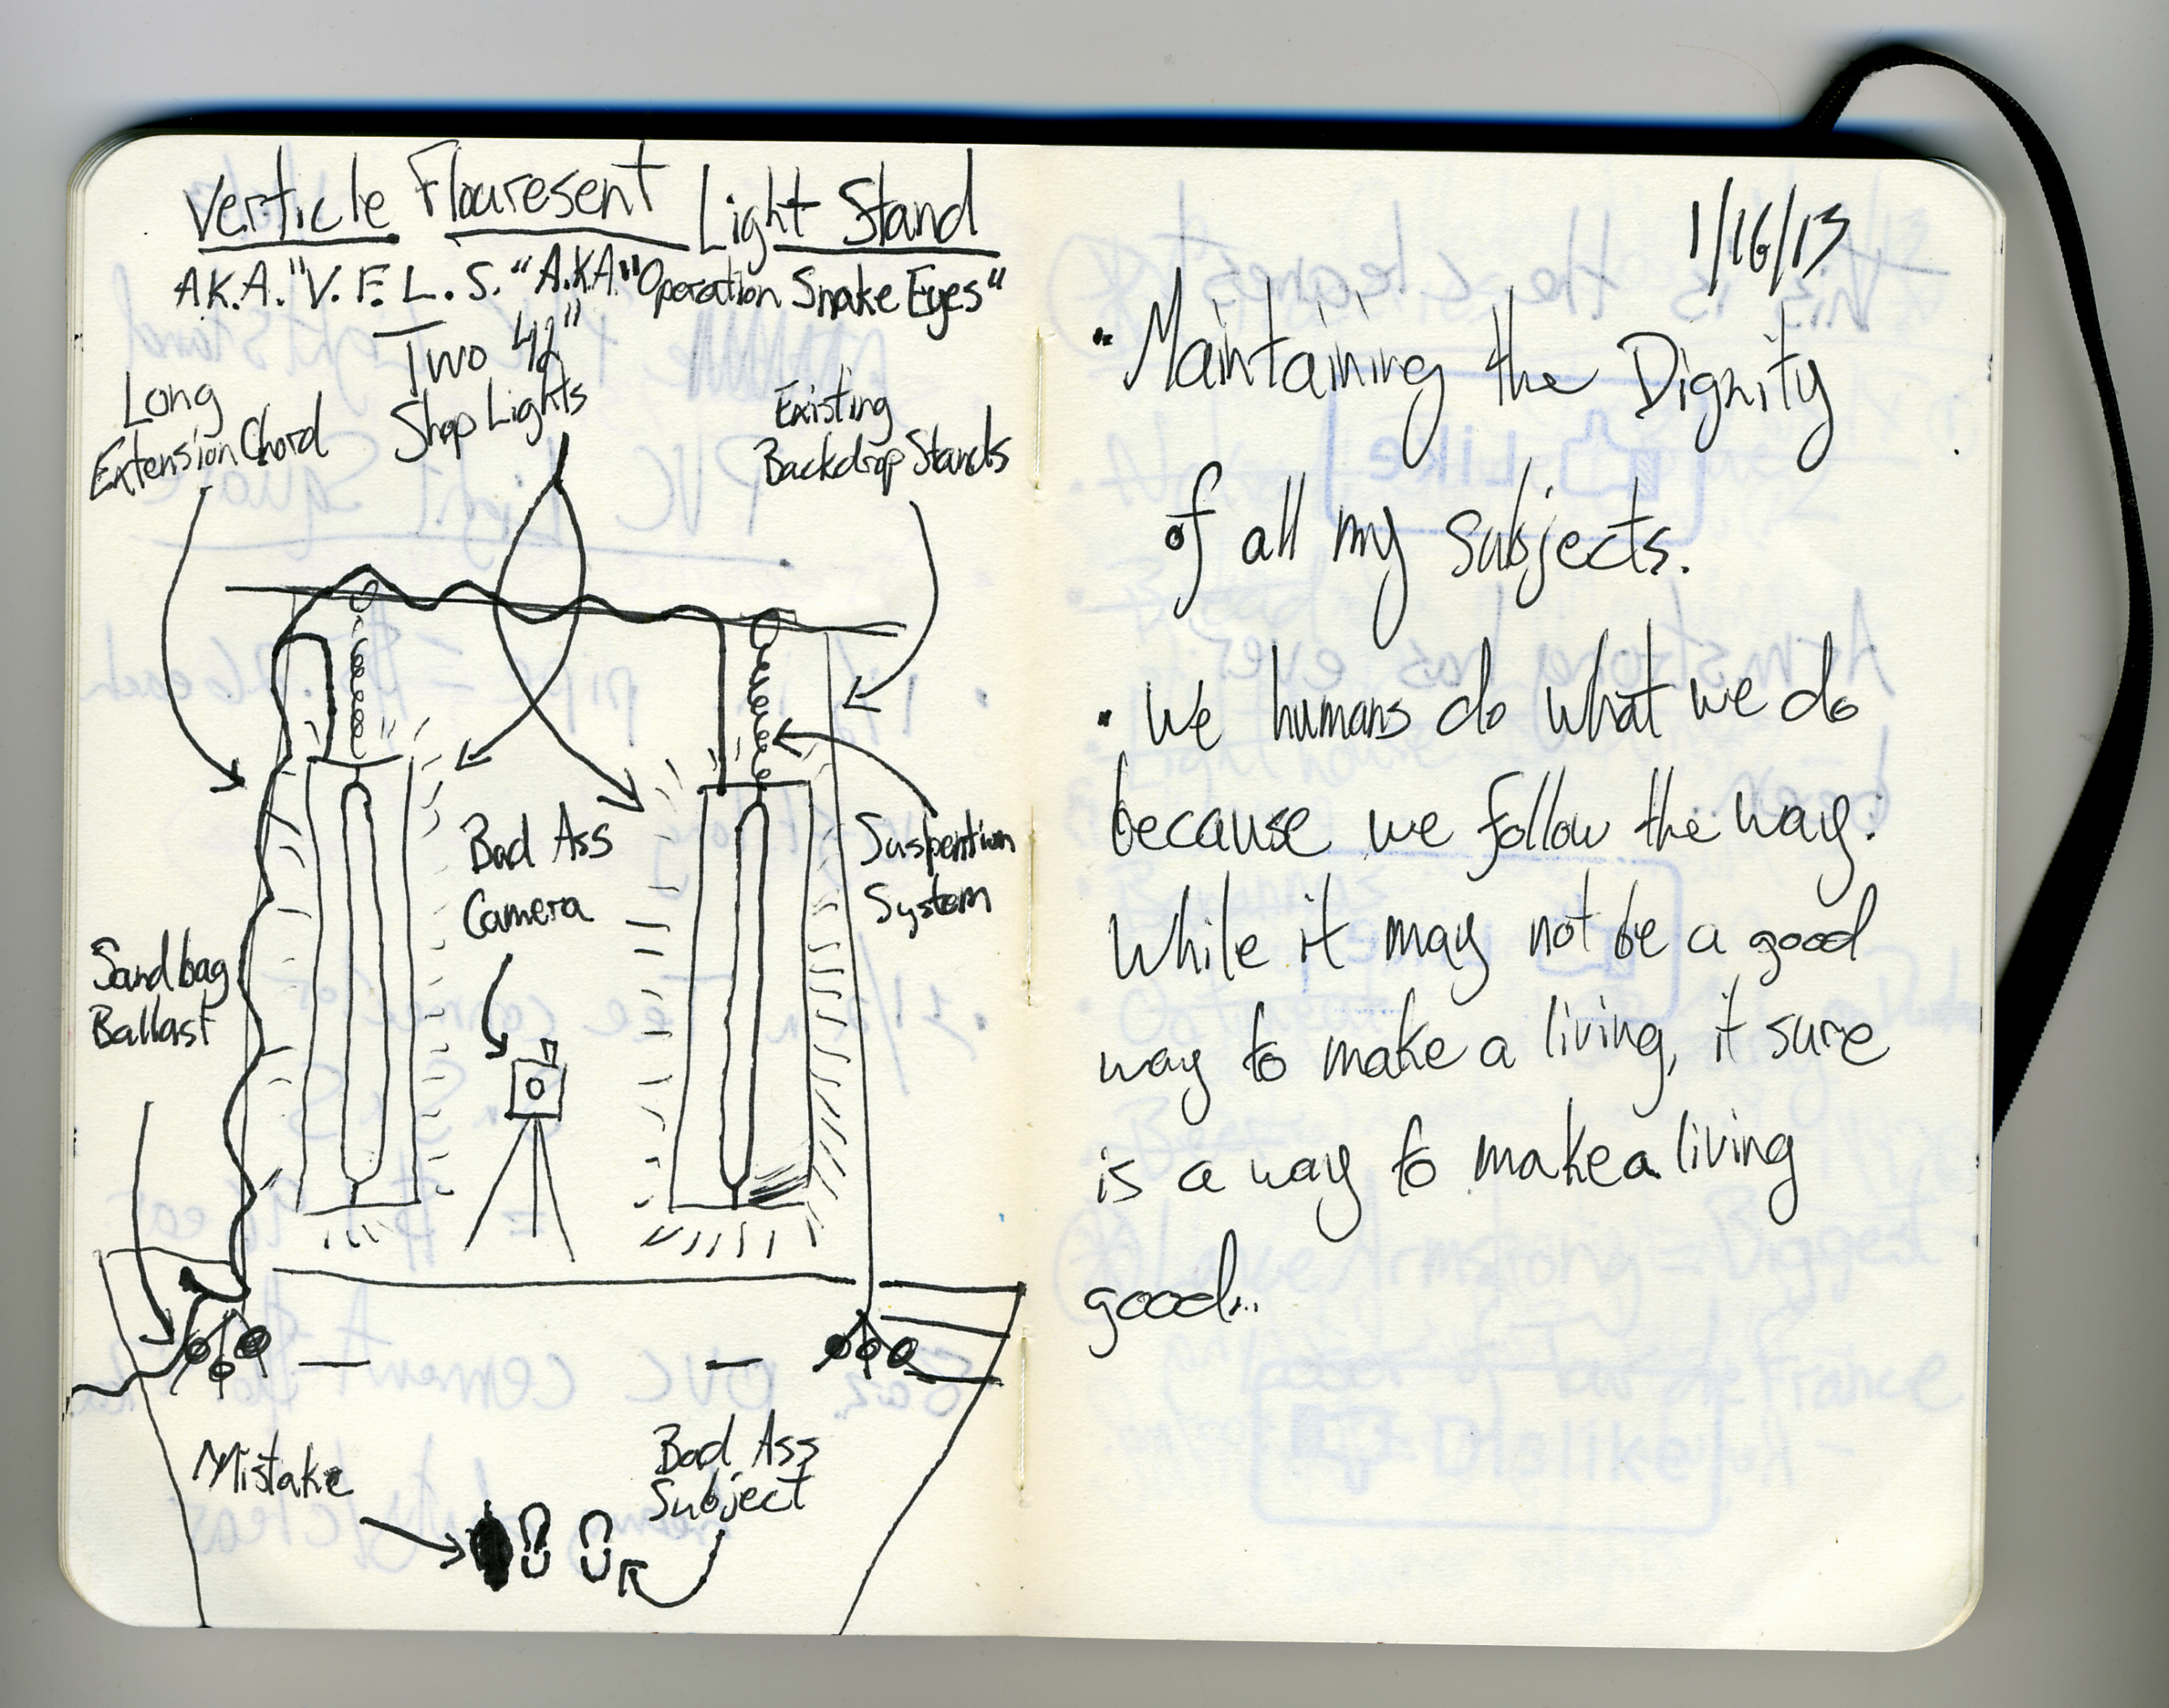 Verticle Flouresent Light Stand
A.K.A. "V.F.L.S." A.K.A "Operation Snake Eyes"
Two 42"
Shop Lights
Long
Extension Chord
Existing
Backdrop Stands
Bad Ass
Camera
Suspention
System
Sandbag
Ballast
Mistake
Bad Ass
Subject
1/16/13
• Maintaining the Dignity
of all my subjects.
• We humans do what we do
because we follow the way.
While it may not be a good
way to make a living, it sure
is a way to make a living
good...